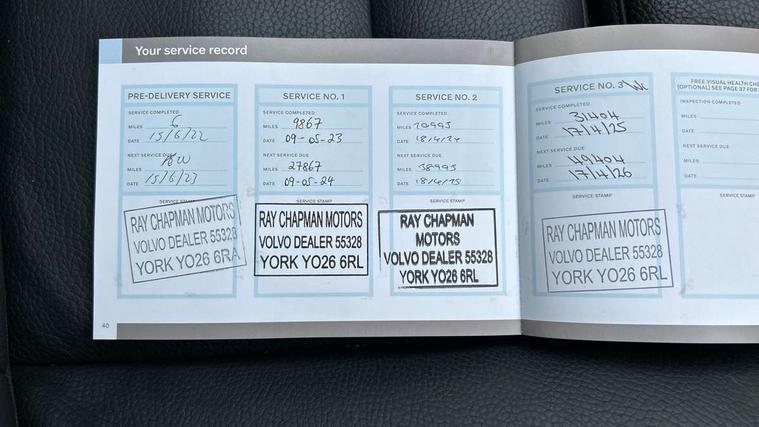 Your service record
PRE-DELIVERY SERVICE
SERVICE COMPLETED
MILES 6
DATE 15/6/22
NEXT SERVICE DUE
MILES
DATE 15/6/23
SERVICE STAMP
RAY CHAPMAN MOTORS
VOLVO DEALER 55328
YORK YO26 6RA
SERVICE NO. 1
SERVICE COMPLETED
MILES 9867
DATE 09-05-23
NEXT SERVICE DUE
MILES 27867
DATE 09-05-24
SERVICE STAMP
RAY CHAPMAN MOTORS
VOLVO DEALER 55328
YORK YO26 6RL
SERVICE NO. 2
SERVICE COMPLETED
MILES 20995
DATE 18/4/24
NEXT SERVICE DUE
MILES 38995
DATE 18/4/25
SERVICE STAMP
RAY CHAPMAN
MOTORS
VOLVO DEALER 55328
YORK YO26 6RL
SERVICE NO. 3
SERVICE COMPLETED
MILES 31404
DATE 17/4/25
NEXT SERVICE DUE
MILES 49404
DATE 17/4/26
SERVICE STAMP
RAY CHAPMAN MOTORS
VOLVO DEALER 55328
YORK YO26 6RL
FREE VISUAL HEALTH CHE
(OPTIONAL) SEE PAGE 37 FOR
INSPECTION COMPLETED
MILES
DATE
NEXT SERVICE DUE
MILES
DATE
SERVICE
40